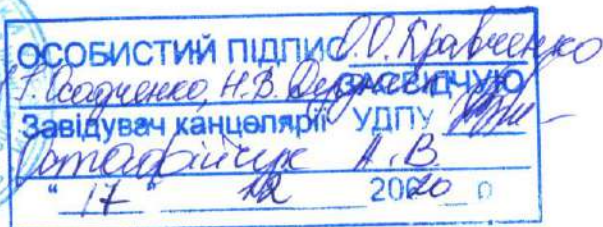 ОСОБИСТИЙ ПІДПИС О.О. Кравченко
Осадченко, Н.В. ЗАСВІДЧУЮ
Завідувач канцелярії УДПУ
А.В.
"17" 12 2020 р